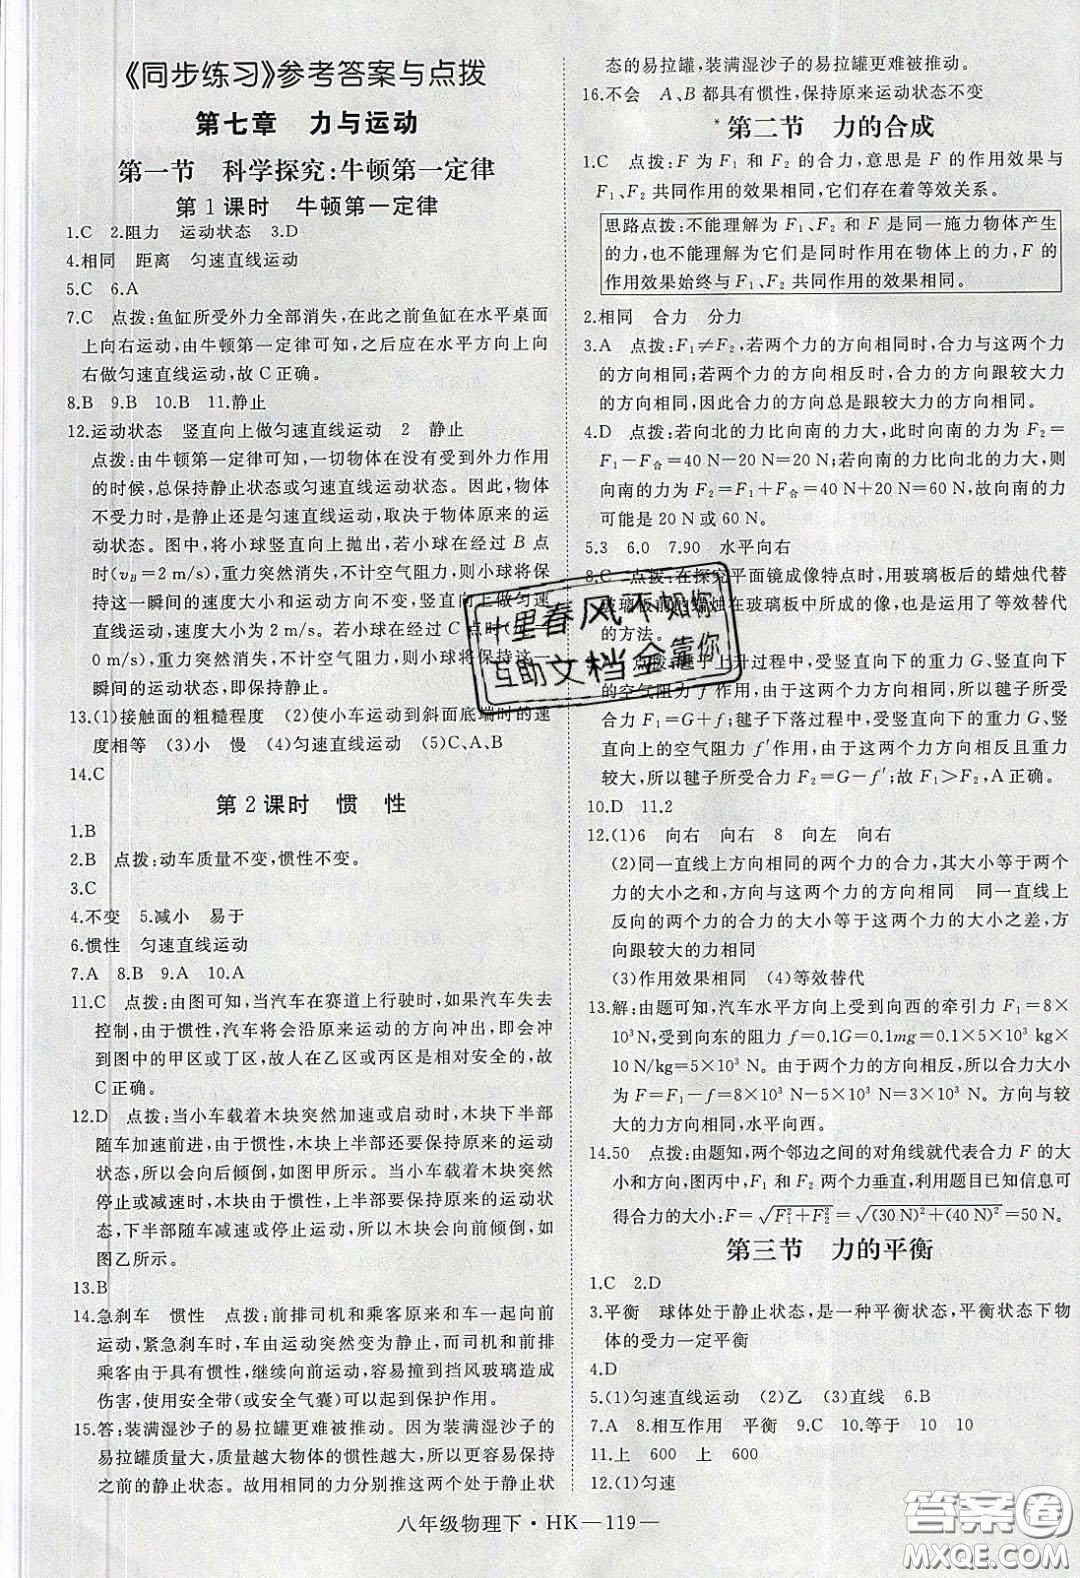 《同步练习》参考答案与点拨
第七章 力与运动
第一节 科学探究:牛顿第一定律
第1课时 牛顿第一定律
1.C 2.阻力 运动状态 3.D
4.相同 距离 匀速直线运动
5.C 6.A
7.C 点拨:鱼缸所受外力全部消失,在此之前鱼缸在水平桌面
上向右运动,由牛顿第一定律可知,之后应在水平方向上向
右做匀速直线运动,故C正确。
8.B 9.B 10.B 11.静止
12.运动状态 竖直向上做匀速直线运动 2 静止
点拨:由牛顿第一定律可知,一切物体在没有受到外力作用
的时候,总保持静止状态或匀速直线运动状态。因此,物体
不受力时,是静止还是匀速直线运动,取决于物体原来的运
动状态。图中,将小球竖直向上抛出,若小球在经过 B 点
时(v_B=2 m/s),重力突然消失,不计空气阻力,则小球将保
持这一瞬间的速度大小和运动方向不变,竖直向上做匀速
直线运动,速度大小为2 m/s。若小球在经过C点时(v
0 m/s),重力突然消失,不计空气阻力,小球将保持这一
瞬间的运动状态不变,即保持静止。
13.(1)接触面的粗糙程度 (2)使小车运动到斜面底端时的速
度相等 (3)小 慢 (4)匀速直线运动 (5)C、A、B
14.C
第2课时 惯 性
1.B
2.B 点拨:动车质量不变,惯性不变。
3.C
4.不变 5.减小 易于
6.惯性 匀速直线运动
7.A 8.B 9.A 10.A
11.C 点拨:由图可知,当汽车在赛道上行驶时,如果汽车失去
控制,由于惯性,汽车将会沿原来运动的方向冲出,即会冲
到图中的甲区或丁区,故人在乙区或丙区是相对安全的,故
C正确。
12.D 点拨:当小车载着木块突然加速或启动时,木块下半部
随车加速前进,由于惯性,木块上半部还要保持原来的运动
状态,所以木块会向后倾倒,如图甲所示。当小车载着木块突然
停止或减速时,木块由于惯性,上半部分还要保持原来的运动状
态,下半部随车减速或停止运动,所以木块会向前倾倒,如
图乙所示。
13.B
14.急刹车 惯性 点拨:前排司机和乘客原来和车一起向前
运动,紧急刹车时,车由运动突然变为静止,而司机和前排
乘客由于具有惯性,继续向前运动,容易撞到挡风玻璃造成
伤害,使用安全带(或安全气囊)可以起到保护作用。
15.答:装满湿沙子的易拉罐更难被推动。因为装满湿沙子的
易拉罐质量大,质量越大物体的惯性越大,越不容易保持
之前的静止状态。故用相同的力分别推这两个处于静止状
态的易拉罐,装满湿沙子的易拉罐更难被推动。
16.不会 A、B都具有惯性,保持原来运动状态不变
*第二节 力的合成
1.C 点拨:F 为 F₁ 和 F₂ 的合力,意思是 F 的作用效果与
F₁、F₂ 共同作用的效果相同,它们存在着等效关系。
思路点拨:不能理解为 F₁、F₂ 和 F 是同一施力物体产生
的力,也不能理解为它们是同时作用在物体上的力,F 的
作用效果始终与 F₁、F₂ 共同作用的效果相同。
2.相同 合力 分力
3.A 点拨:F₁≠F₂,若两个力的方向相同时,合力的方向与两个
力的方向相同;若两个力的方向相反时,合力的方向跟较大力的
方向相同,因此合力的方向总是跟较大力的方向相同。
4.D 点拨:若向北的力比向南的力大,此时向南的力为 F₂=
F₁-F合=40 N-20 N=20 N;若向南的力比向北的力大,则
向南的力为 F₂=F₁+F合=40 N+20 N=60 N,故向南的力
可能是20 N或60 N。
5.3 6.0 7.90 水平向右
8.C 点拨:在探究平面镜成像特点时,用玻璃板后的蜡烛代替
玻璃板前的蜡烛在玻璃板中所成的像,也是运用了等效替代
的方法。
点拨:毽子上升过程中,受竖直向下的重力G、竖直向下
的空气阻力 f 作用,由于这两个力方向相同,所以毽子所受
合力 F₁=G+f;毽子下落过程中,受竖直向下的重力G、竖
直向上的空气阻力 f′作用,由于这两个力方向相反且重力
较大,所以毽子所受合力 F₂=G-f′;故 F₁>F₂,A正确。
10.D 11.2
12.(1)6 向右 向右 8 向左 向右
(2)同一直线上方向相同的两个力的合力,其大小等于这两个
力的大小之和,方向与这两个力的方向相同 同一直线上
反向的两个力的合力的大小等于这两个力的大小之差,方
向跟较大的力相同
(3)作用效果相同 (4)等效替代
13.解:由题可知,汽车水平方向上受到向西的牵引力 F₁=8×
10³N,受到向东的阻力 f=0.1G=0.1mg=0.1×5×10³ kg×
10 N/kg=5×10³ N。由于两力的方向相反,所以合力大小
为 F=F₁-f=8×10³ N-5×10³ N=3×10³ N。方向与较大
力方向相同,水平向西。
14.50 点拨:由题知,两个邻边之间的对角线就代表合力 F 的大
小和方向,图丙中,F₁ 和 F₂ 两个力垂直,利用题目已知信息可
得合力的大小:F=√(F₁²+F₂²)=√((30 N)²+(40 N)²)=50 N。
第三节 力的平衡
1.C 2.D
3.平衡 球体处于静止状态,是一种平衡状态,平衡状态下物
体的受力一定平衡
4.D
5.(1)匀速直线运动 (2)乙 (3)直线 6.B
7.A 8.相互作用 平衡 9.C 10.等于 10 10
11.上 600 上 600
12.(1)匀速
八年级物理下·HK—119—
十里春风不如你
互助文档全靠你
答案圈
MXQE.COM